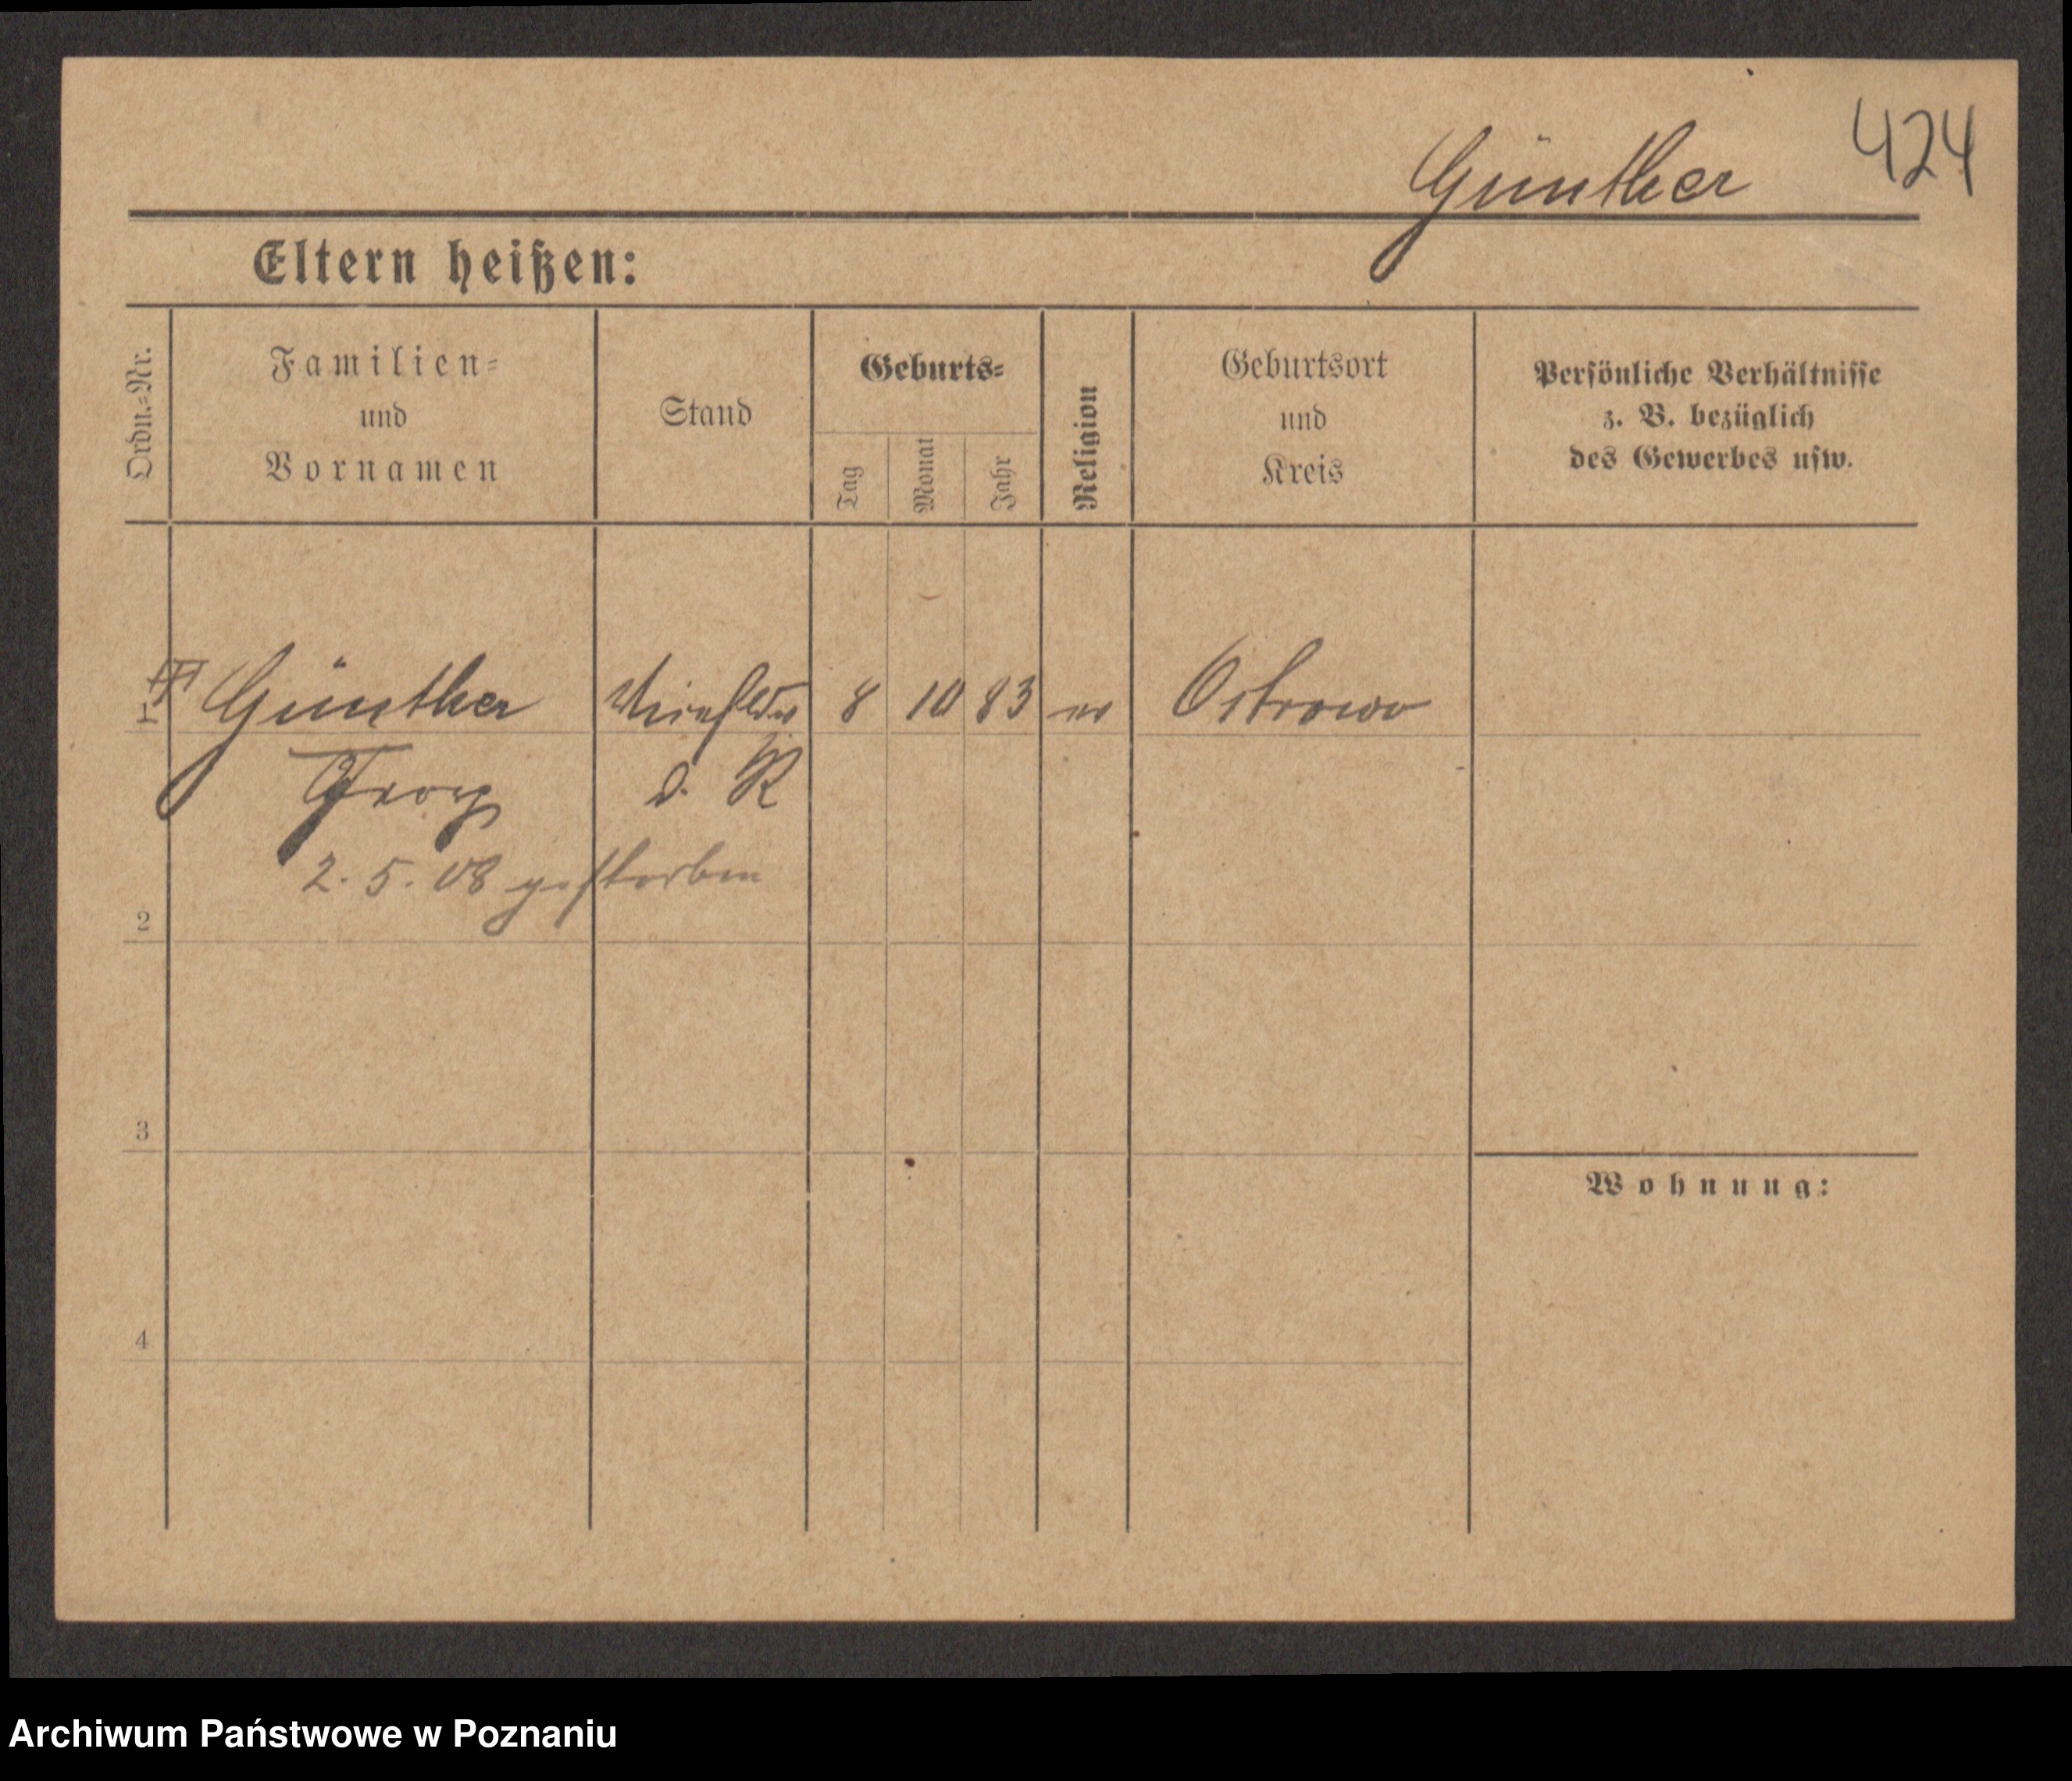 424
Günther
Eltern heißen:
Ordn.=Nr.
Familien=
und
Vornamen
Stand
Geburts=
Tag
Monat
Jahr
Religion
Geburtsort
und
Kreis
Persönliche Verhältnisse
z. B. bezüglich
des Gewerbes usw.
1 Günther 8 10 83 ev Ostrowo
Georg d. R
2. 5. 08 gestorben
2
3
Wohnung:
4
Archiwum Państwowe w Poznaniu